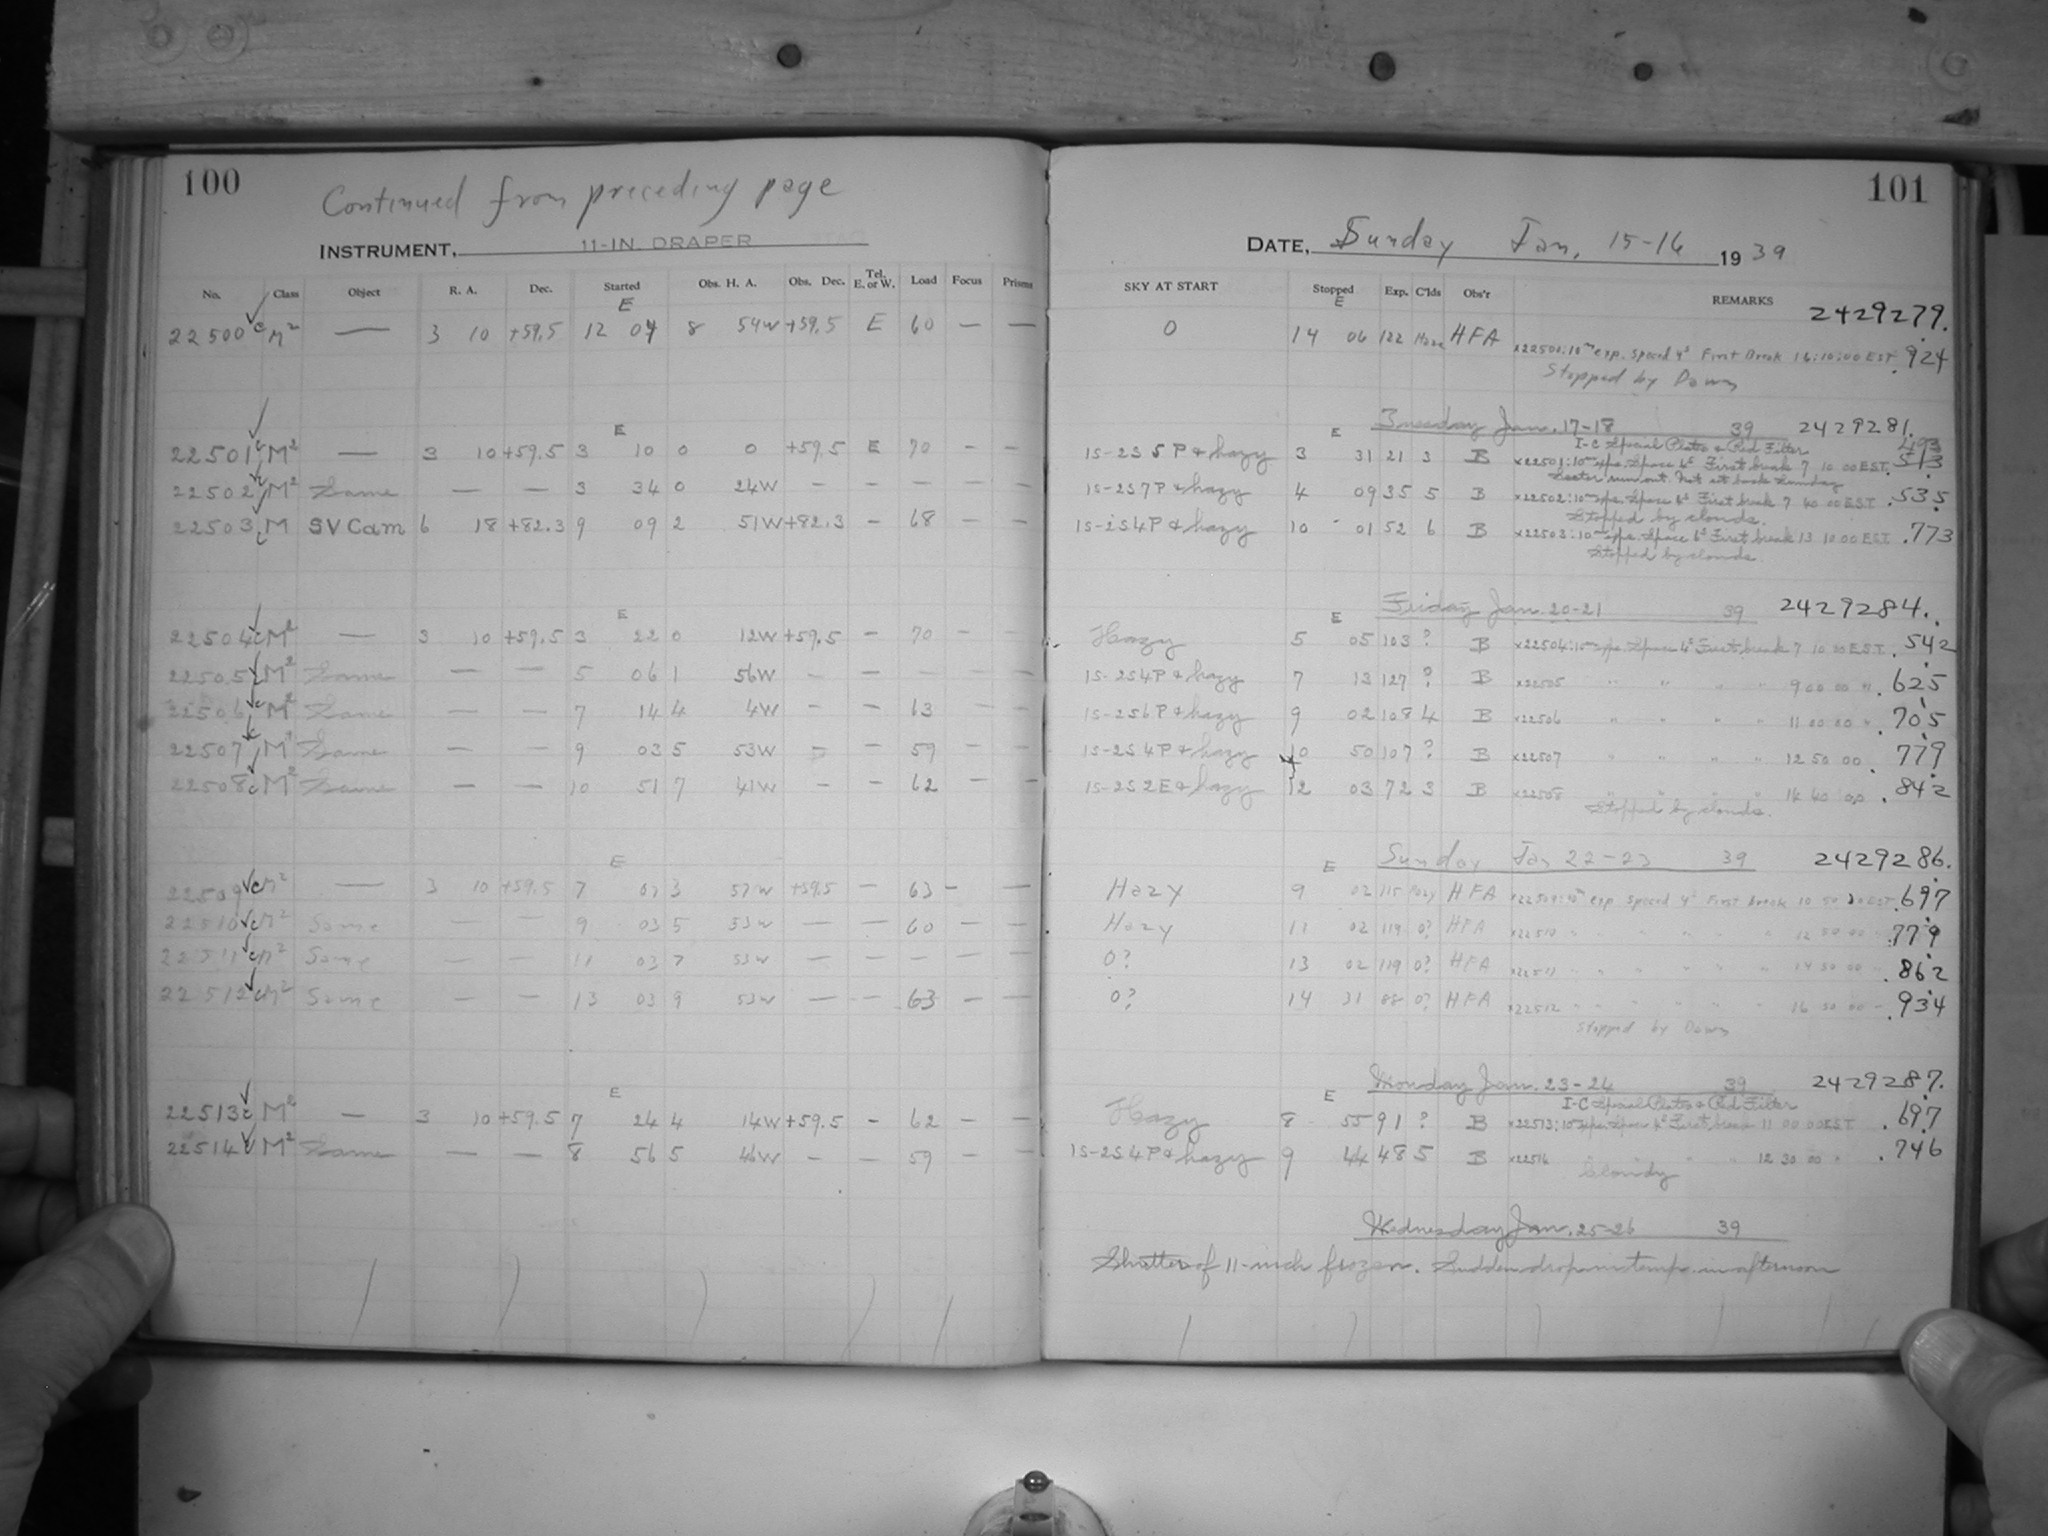 100
Continued from preceding page
INSTRUMENT, 11-IN. DRAPER
No. Class Object R. A. Dec. Started Obs. H. A. Obs. Dec. Tel. E. or W. Load Focus Prisms
E
22500 c M² — 3 10 +59.5 12 04 8 54W +59.5 E 60 — —
E
22501 c M² — 3 10 +59.5 3 10 0 0 +59.5 E 70 — —
22502 c M² Same — — 3 34 0 24W — — — — —
22503 c M SV Cam 6 18 +82.3 9 09 2 51W +82.3 — 68 — —
E
22504 c M² — 3 10 +59.5 3 22 0 12W +59.5 — 70 — —
22505 c M² Same — — 5 06 1 56W — — — — —
22506 c M² Same — — 7 14 4 4W — — 63 — —
22507 c M² Same — — 9 03 5 53W — — 59 — —
22508 c M² Same — — 10 51 7 41W — — 62 — —
E
22509 c M² — 3 10 +59.5 7 07 3 57W +59.5 — 63 — —
22510 c M² Same — — 9 03 5 53W — — 60 — —
22511 c M² Same — — 11 03 7 53W — — — — —
22512 c M² Same — — 13 03 9 53W — — 63 — —
E
22513 c M² — 3 10 +59.5 7 24 4 14W +59.5 — 62 — —
22514 c M² Same — — 8 56 5 46W — — 59 — —
101
DATE, Sunday Jan. 15-16 1939
SKY AT START Stopped Exp. C'lds Obs'r REMARKS
E 2429279.
0 14 06 122 Haze HFA x22500:10ᵐ exp. spaced 4ˢ First Break 16:10:00 EST .924
Stopped by Dawn
E Tuesday Jan. 17-18 39 2429281.
I-C Special Plates & Red Filter 493
1S-2S 5 P & hazy 3 31 21 3 B x22501:10ᵐ exp. Space 4ˢ First break 7 10 00 EST. .513
Sector run out. Not set back Sunday
1S-2S 7 P & hazy 4 09 35 5 B x22502:10ᵐ exp. Space 4ˢ First break 7 40 00 EST. .535
Stopped by clouds.
1S-2S 4 P & hazy 10 01 52 6 B x22503:10ᵐ exp. Space 4ˢ First break 13 10 00 EST .773
Stopped by clouds
E Friday Jan. 20-21 39 2429284.
Hazy 5 05 103 ? B x22504:10ᵐ exp. Space 4ˢ First break 7 10 00 EST. .542
1S-2S 4 P & hazy 7 13 127 ? B x22505 " " " " 9 00 00 " .625
1S-2S 6 P & hazy 9 02 108 4 B x22506 " " " " 11 00 00 " .705
1S-2S 4 P & hazy 10 50 107 ? B x22507 " " " " 12 50 00 .779
1S-2S 2 E & hazy 12 03 72 3 B x22508 " " " " 14 40 00 .842
Stopped by clouds.
E Sunday Jan 22-23 39 2429286.
Hazy 9 02 115 Hazy HFA x22509:10ᵐ exp spaced 4ˢ First Break 10 50 00 EST .697
Hazy 11 02 119 0? HFA x22510 " " " " " 12 50 00 " .779
0? 13 02 119 0? HFA x22511 " " " " " 14 50 00 " .862
0? 14 31 88 0? HFA x22512 " " " " " 16 50 00 .934
Stopped by Dawn
E Monday Jan. 23-24 39 2429287.
I-C Special Plates & Red Filter
Hazy 8 55 91 ? B x22513:10ᵐ exp. Space 4ˢ First break 11 00 00 EST .697
1S-2S 4 P & hazy 9 44 48 5 B x22514 " " " " 12 30 00 " .746
Cloudy
Wednesday Jan. 25-26 39
Shutter of 11-inch frozen. Sudden drop in temp. in afternoon